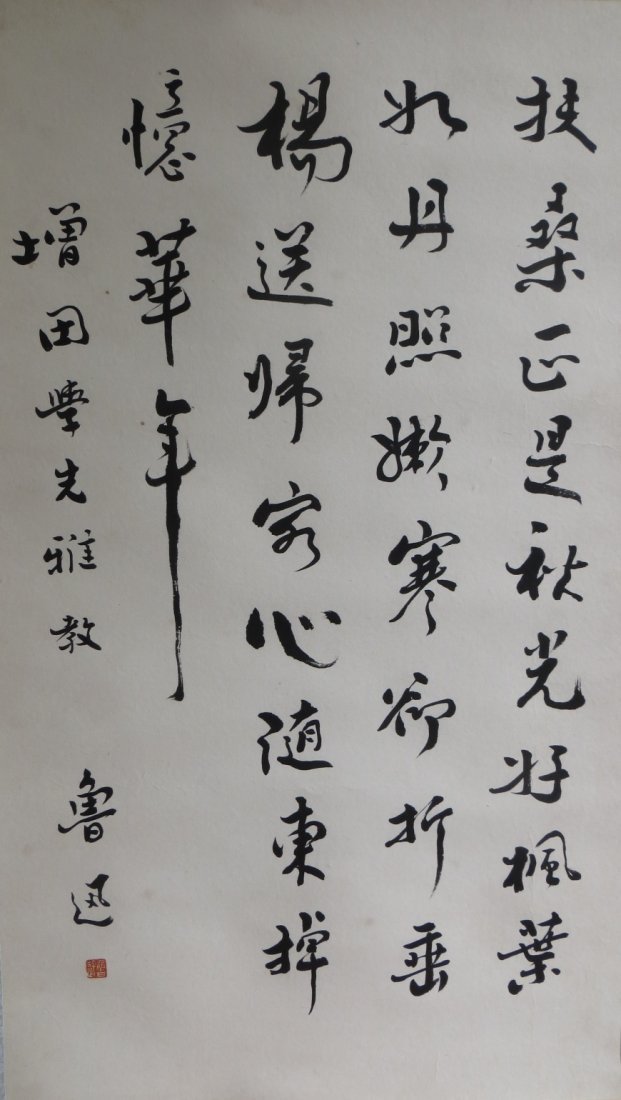 扶桑正是秋光好楓葉
如丹照嫩寒卻折垂
楊送歸客心隨東棹
憶華年
增田學兄雅教
魯迅